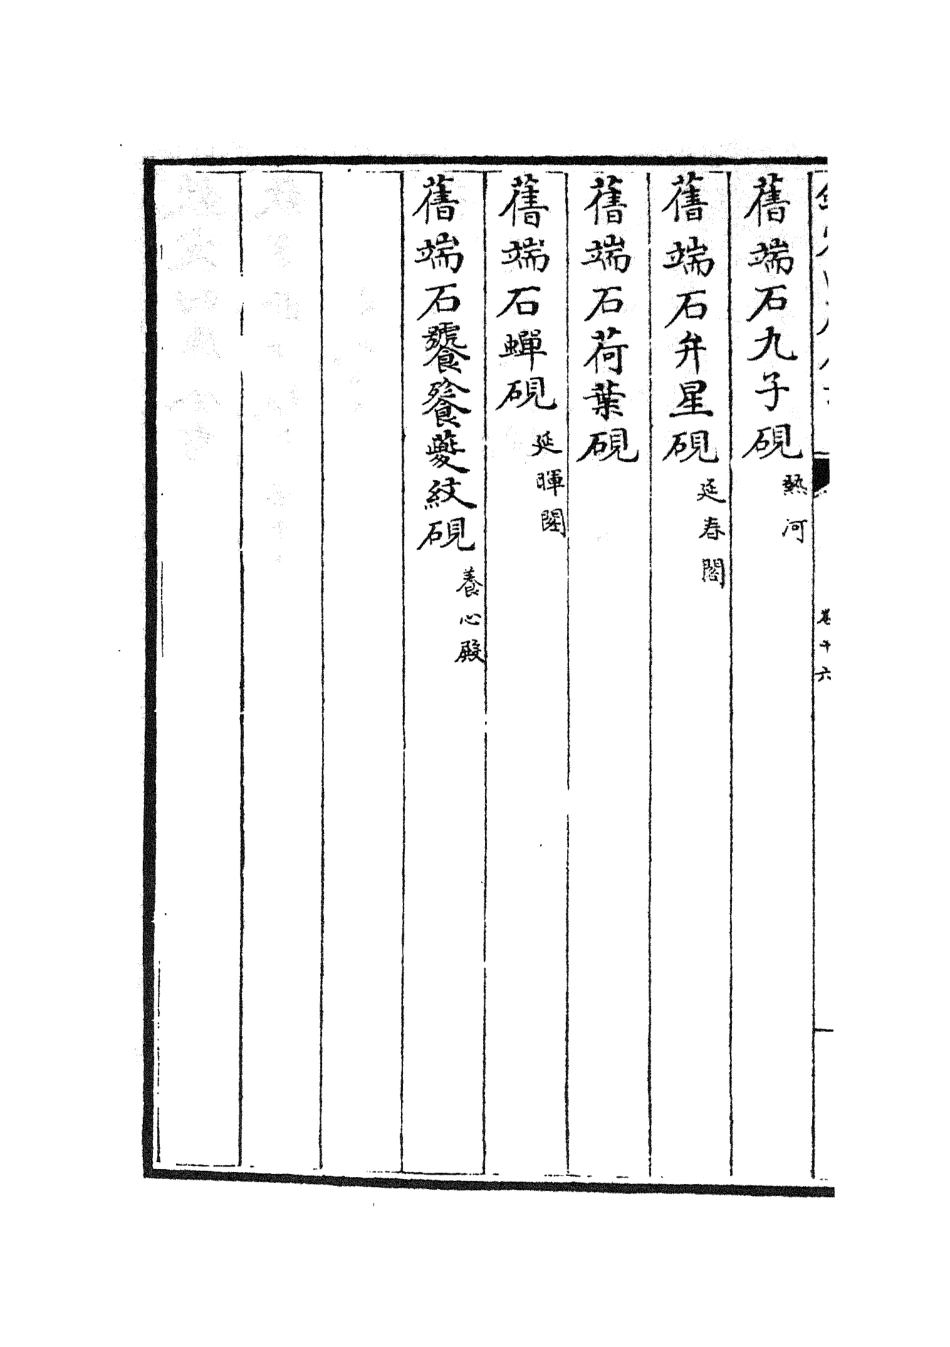 舊端石九子硯 熱河
舊端石弁星硯 延春閣
舊端石荷葉硯
舊端石蟬硯 延暉閣
舊端石饕餮夔紋硯 養心殿
卷十六